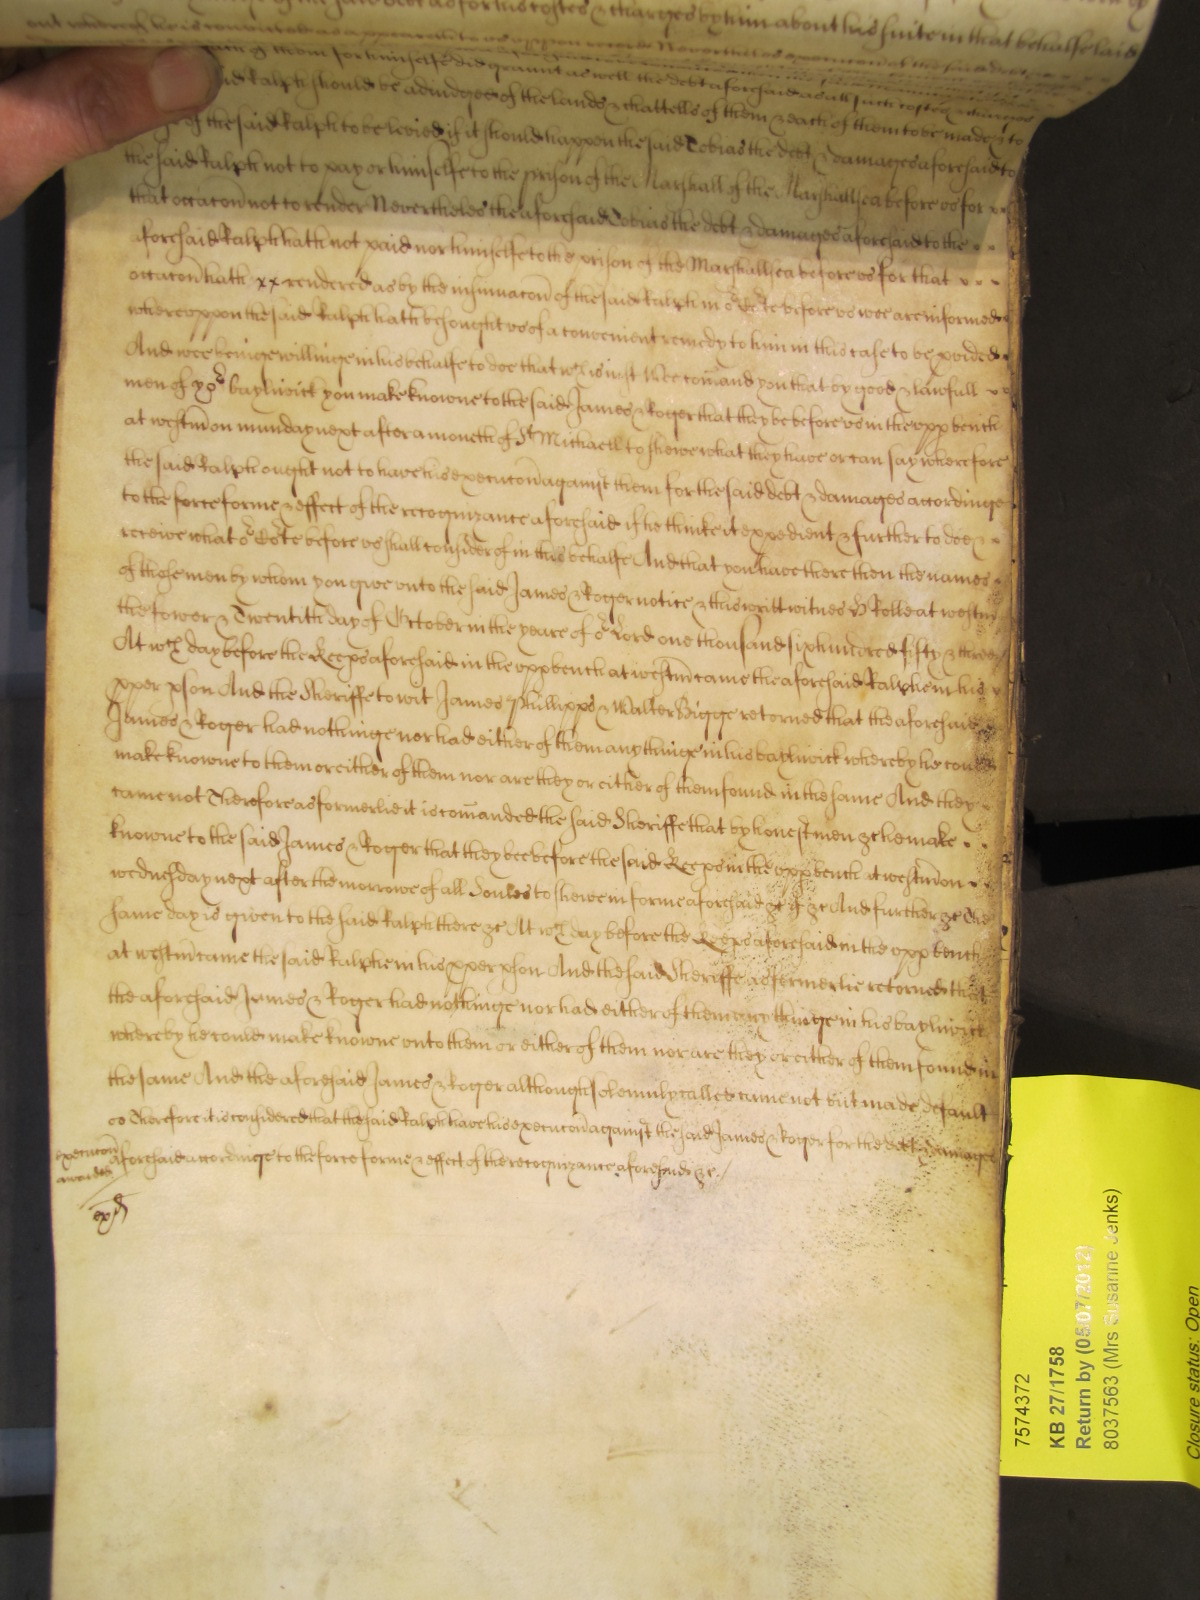 of the said debt as for his costes & charges by him about his suite in that behalfe laid
out whereof he is convicted as appeareth to us uppon record Nevertheles
of them for himselfe did graunt as well the debt aforesaid as all such costes & charges
Ralph should be adiudged of the lands & chattells of them & each of them to be made & to
of the said Ralph to be levied if it should happen the said Tobias the debt & damages aforesaid to
the said Ralph not to pay or himselfe to the prison of the Marshall of the Marshallsea before us for
that occacon not to render Nevertheles the aforesaid Tobias the debt & damages aforesaid to the
aforesaid Ralph hath not paid nor himselfe to the prison of the Marshallsea before us for that
occacon hath xx rendered as by the insinuacon of the said Ralph in or Co:te before us wee are informed
whereuppon the said Ralph hath besought us of a convenient remedy to him in this case to be pvided
And wee beinge willinge in his behalfe to doe that wch is iust Wee comand you that by good & lawfull
men of yor baylywick you make knowne to the said James & Roger that they be before us in the upp bench
at westm on munday next after a moneth of St Michaell to shewe what they have or can say wherefore
the said Ralph ought not to have his execucon against them for the said debt & damages accordinge
to the force forme & effect of the recognizance aforesaid if he thinke it expedient & further to doe &
receive what or Co:te before us shall consider of in this behalfe And that you have there then the names
of those men by whom you give unto the said James & Roger notice & this writt witnes H Rolle at westm
the fower & Twentith day of October in the yeare of or Lord one thousand six hundred fifty & three
At wch day before the Keeps aforesaid in the upp bench at westm came the aforesaid Ralphe in his
pper pson And the Sheriffe to wit James Phillipps & Walter Bigge retorned that the aforesaid
James & Roger had nothinge nor had either of them any thinge in his baylywick whereby he could
make knowne to them or either of them nor are they or either of them found in the same And they
came not Therefore as formerlie it is comanded the said Sheriffe that by honest men &c he make
knowne to the said James & Roger that they bee before the said Keeps in the upp bench at westm on
wednesday next after the morrowe of all Soules to shewe in forme aforesaid &c if &c And further &c The
same day is given to the said Ralph there &c At wch day before the Keeps aforesaid in the upp bench
at westm came the said Ralphe in his pper pson And the said Sheriffe as formerlie retorned that
the aforesaid James & Roger had nothinge nor had either of them any thinge in his baylywick
whereby he could make knowne unto them or either of them nor are they or either of them found in
the same And the aforesaid James & Roger although solemnly called came not but made default
Therefore it is considered that the said Ralph have his execucon against the said James & Roger for the debt & damages
execucon
awarded
aforesaid accordinge to the force forme & effect of the recognizance aforesaid &c
exd
7574372
KB 27/1758
Return by (05/07/2012)
8037563 (Mrs Susanne Jenks)
Closure status: Open